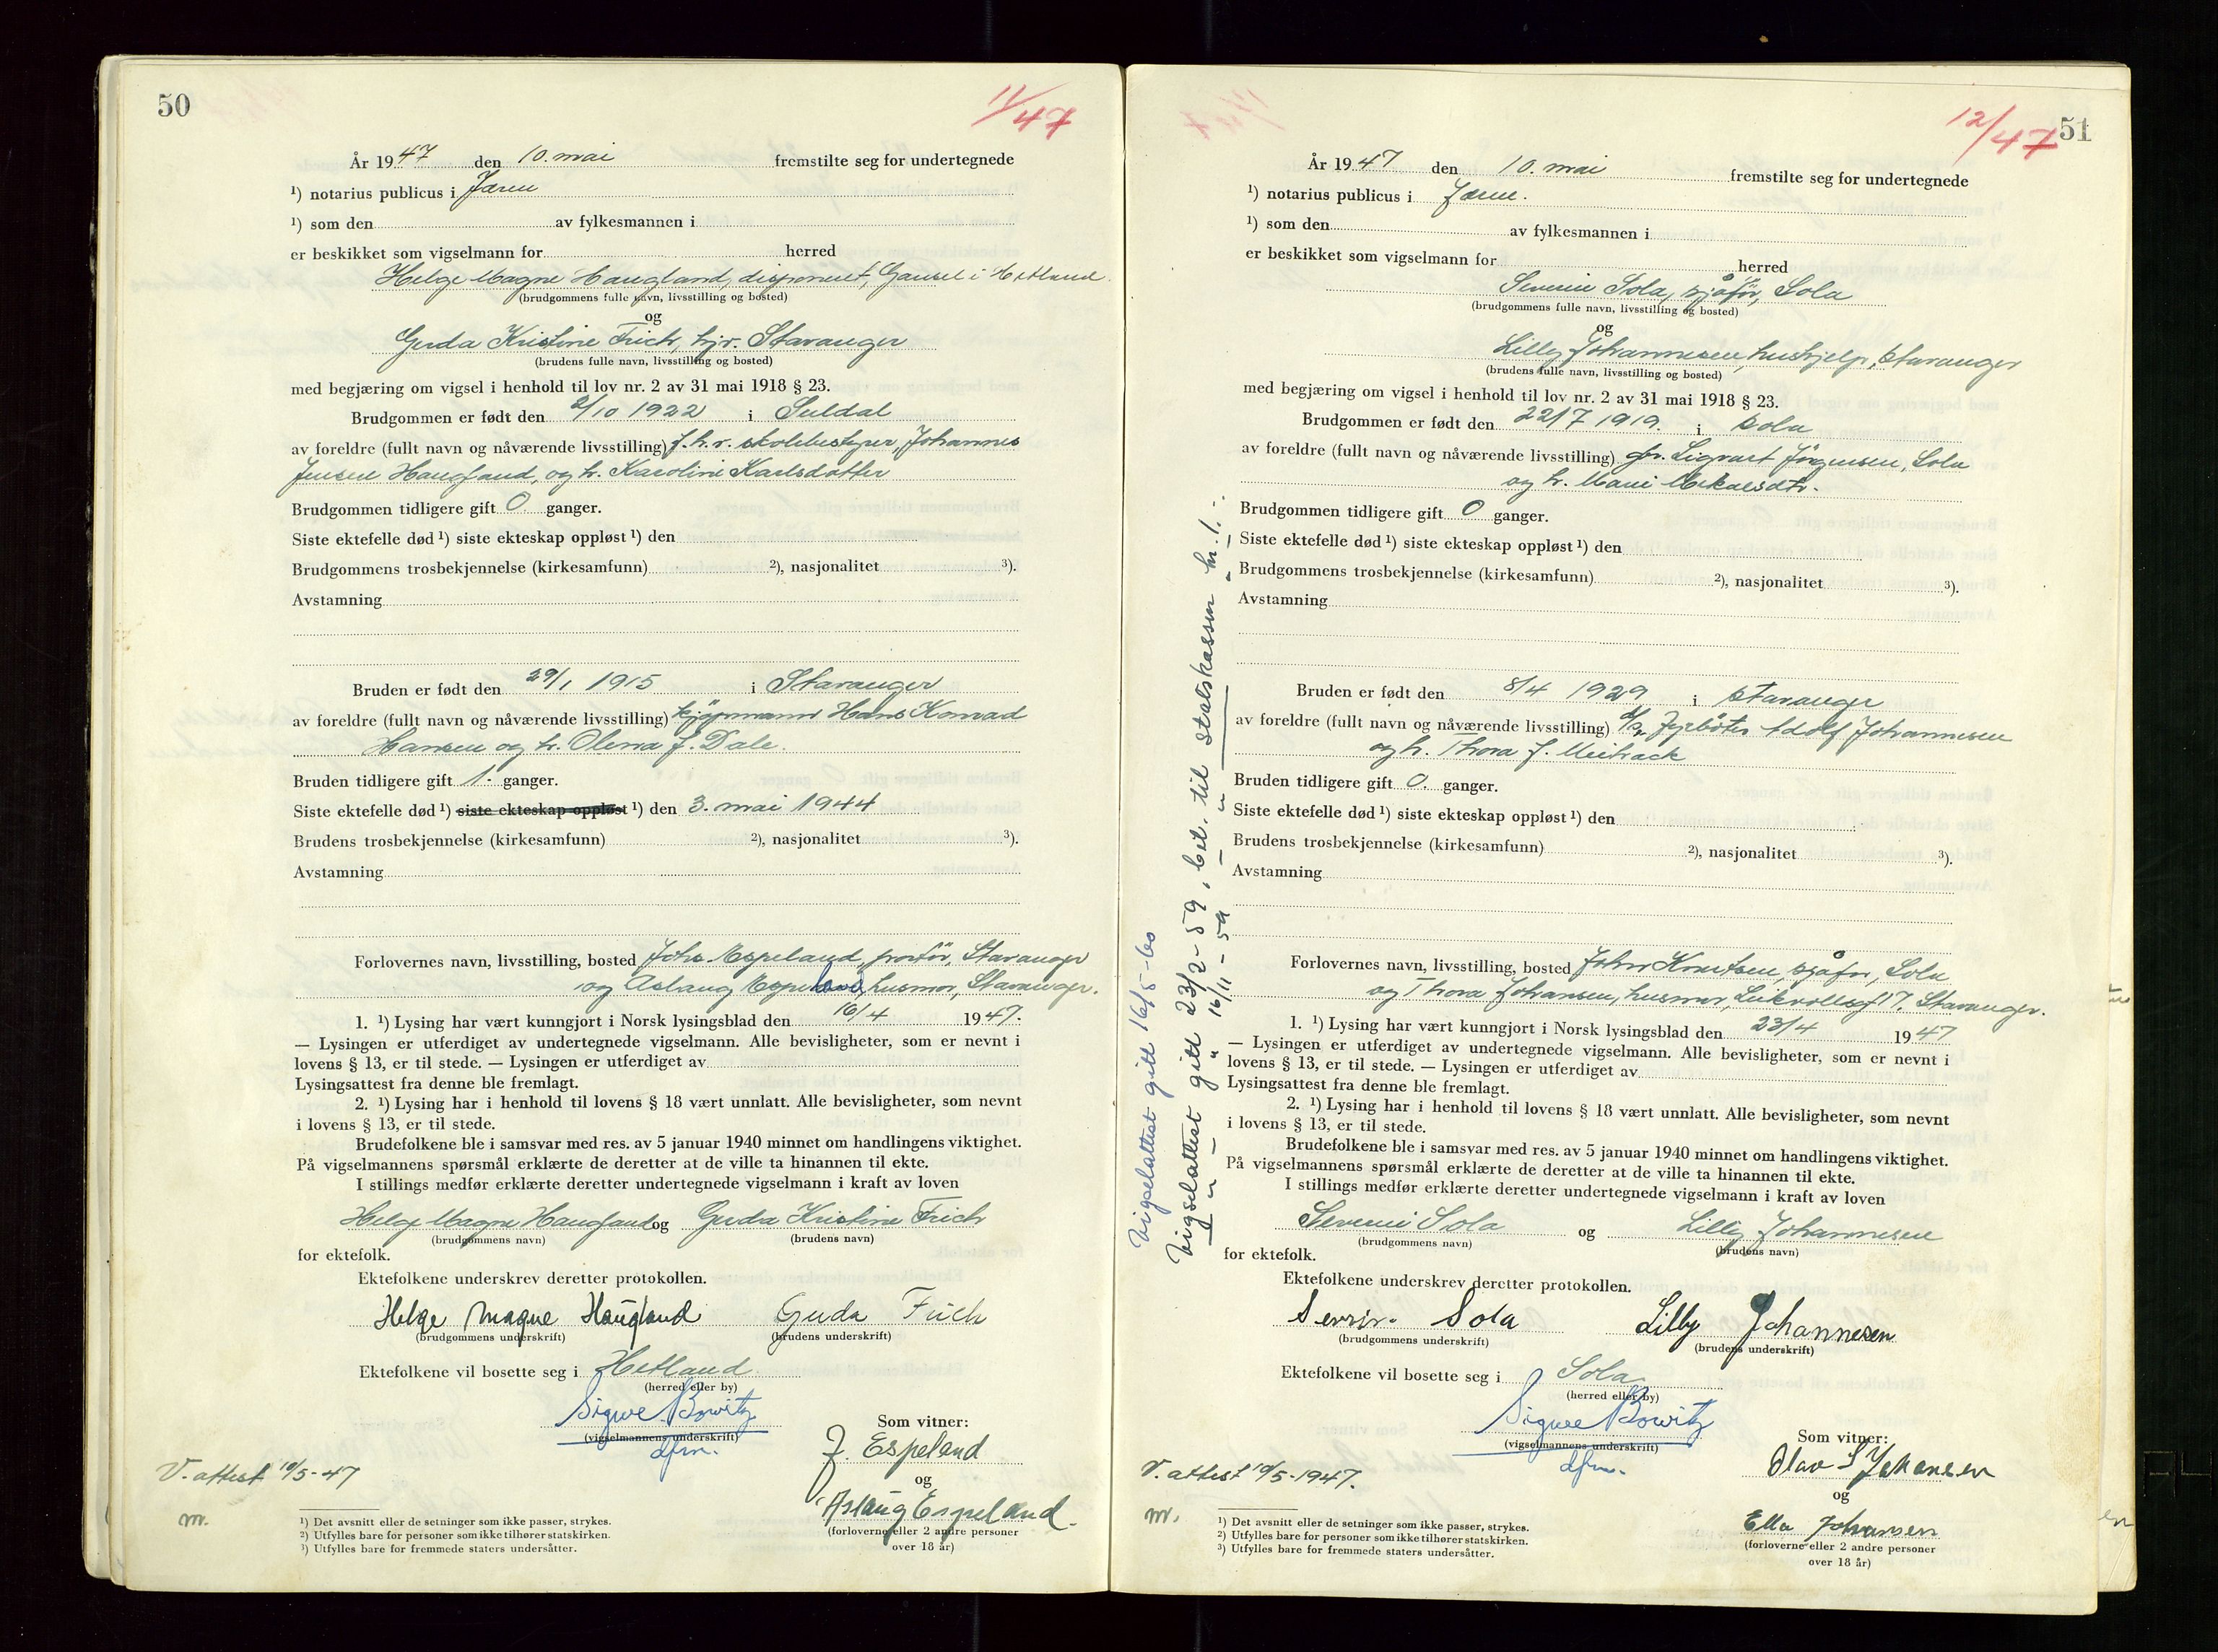 50
11/47
År 1947 den 10. mai fremstilte seg for undertegnede
¹) notarius publicus i Jæren
¹) som den av fylkesmannen i
er beskikket som vigselmann for herred
Helge Magne Haugland, disponent, Gausel i Hetland
(brudgommens fulle navn, livsstilling og bosted)
og
Gerda Kristine Frich, hjv. Stavanger
(brudens fulle navn, livsstilling og bosted)
med begjæring om vigsel i henhold til lov nr. 2 av 31 mai 1918 § 23.
Brudgommen er født den 2/10 1922 i Suldal
av foreldre (fullt navn og nåværende livsstilling) f.h.v. skolebestyrer, Johannes
Jensen Haugland, og h. Karoline Karlsdatter
Brudgommen tidligere gift 0 ganger.
Siste ektefelle død ¹) siste ekteskap oppløst ¹) den
Brudgommens trosbekjennelse (kirkesamfunn) ²), nasjonalitet ³).
Avstamning
Bruden er født den 29/1 1915 i Stavanger
av foreldre (fullt navn og nåværende livsstilling) kjøpmann Hans Konrad
Hansen og h. Olena f. Dale.
Bruden tidligere gift 1. ganger.
Siste ektefelle død ¹) siste ekteskap oppløst ¹) den 3. mai 1944
Brudens trosbekjennelse (kirkesamfunn) ²), nasjonalitet ³).
Avstamning
Forlovernes navn, livsstilling, bosted Johs Espeland, Stavanger
og Aslaug Espeland, husmor, Stavanger.
1. ¹) Lysing har vært kunngjort i Norsk lysingsblad den 16/4 1947.
— Lysingen er utferdiget av undertegnede vigselmann. Alle bevisligheter, som er nevnt i
lovens § 13, er til stede. — Lysingen er utferdiget av
Lysingsattest fra denne ble fremlagt.
2. ¹) Lysing har i henhold til lovens § 18 vært unnlatt. Alle bevisligheter, som nevnt
i lovens § 13, er til stede.
Brudefolkene ble i samsvar med res. av 5 januar 1940 minnet om handlingens viktighet.
På vigselmannens spørsmål erklærte de deretter at de ville ta hinannen til ekte.
I stillings medfør erklærte deretter undertegnede vigselmann i kraft av loven
Helge Magne Haugland og Gerda Kristine Frich
(brudgommens navn) (brudens navn)
for ektefolk.
Ektefolkene underskrev deretter protokollen.
Helge Magne Haugland Gerda Frich
(brudgommens underskrift) (brudens underskrift)
Ektefolkene vil bosette seg i Hetland
(herred eller by)
Sigwe Bowitz
(vigselmannens underskrift)
dfm.
Som vitner:
J. Espeland
og
Aslaug Espeland.
(forloverne eller 2 andre personer
over 18 år)
V. attest 10/5-47
m.
¹) Det avsnitt eller de setninger som ikke passer, strykes.
²) Utfylles bare for personer som ikke tilhører statskirken.
³) Utfylles bare for fremmede staters undersåtter.
12/47
51
År 1947 den 10. mai fremstilte seg for undertegnede
¹) notarius publicus i Jæren.
¹) som den av fylkesmannen i
er beskikket som vigselmann for herred
Severin Sola, sjåfør, Sola
(brudgommens fulle navn, livsstilling og bosted)
og
Lilly Johannesen, hushjelp, Stavanger
(brudens fulle navn, livsstilling og bosted)
med begjæring om vigsel i henhold til lov nr. 2 av 31 mai 1918 § 23.
Brudgommen er født den 22/7 1919. i Sola
av foreldre (fullt navn og nåværende livsstilling) gbr. Sigvart Jörgensen, Sola
og h. Marie Mikalsdtr.
Brudgommen tidligere gift 0 ganger.
Siste ektefelle død ¹) siste ekteskap oppløst ¹) den
Brudgommens trosbekjennelse (kirkesamfunn) ²), nasjonalitet ³).
Avstamning
Bruden er født den 8/4 1929 i Stavanger
av foreldre (fullt navn og nåværende livsstilling) fyrbøter Adolf Johannesen
og h. Thora f.
Bruden tidligere gift 0. ganger.
Siste ektefelle død ¹) siste ekteskap oppløst ¹) den
Brudens trosbekjennelse (kirkesamfunn) ²), nasjonalitet ³).
Avstamning
Forlovernes navn, livsstilling, bosted John Knutsen, sjåfør, Sola
og Thora Johansen, husmor, 17, Stavanger.
1. ¹) Lysing har vært kunngjort i Norsk lysingsblad den 23/4 1947
— Lysingen er utferdiget av undertegnede vigselmann. Alle bevisligheter, som er nevnt i
lovens § 13, er til stede. — Lysingen er utferdiget av
Lysingsattest fra denne ble fremlagt.
2. ¹) Lysing har i henhold til lovens § 18 vært unnlatt. Alle bevisligheter, som nevnt
i lovens § 13, er til stede.
Brudefolkene ble i samsvar med res. av 5 januar 1940 minnet om handlingens viktighet.
På vigselmannens spørsmål erklærte de deretter at de ville ta hinannen til ekte.
I stillings medfør erklærte deretter undertegnede vigselmann i kraft av loven
Severin Sola og Lilly Johannesen
(brudgommens navn) (brudens navn)
for ektefolk.
Ektefolkene underskrev deretter protokollen.
Severin Sola Lilly Johannesen
(brudgommens underskrift) (brudens underskrift)
Ektefolkene vil bosette seg i Sola
(herred eller by)
Sigwe Bowitz
(vigselmannens underskrift)
dfm.
Som vitner:
Olav S Johansen
og
Ella Johansen
(forloverne eller 2 andre personer
over 18 år)
V. attest 10/5-1947.
m.
¹) Det avsnitt eller de setninger som ikke passer, strykes.
²) Utfylles bare for personer som ikke tilhører statskirken.
³) Utfylles bare for fremmede staters undersåtter.
Vigselattest gitt 16/5-60
Vigselattest gitt 23/2-59, bet. til statskassen kr. 1.-
— " — " 16/11-59 — " —